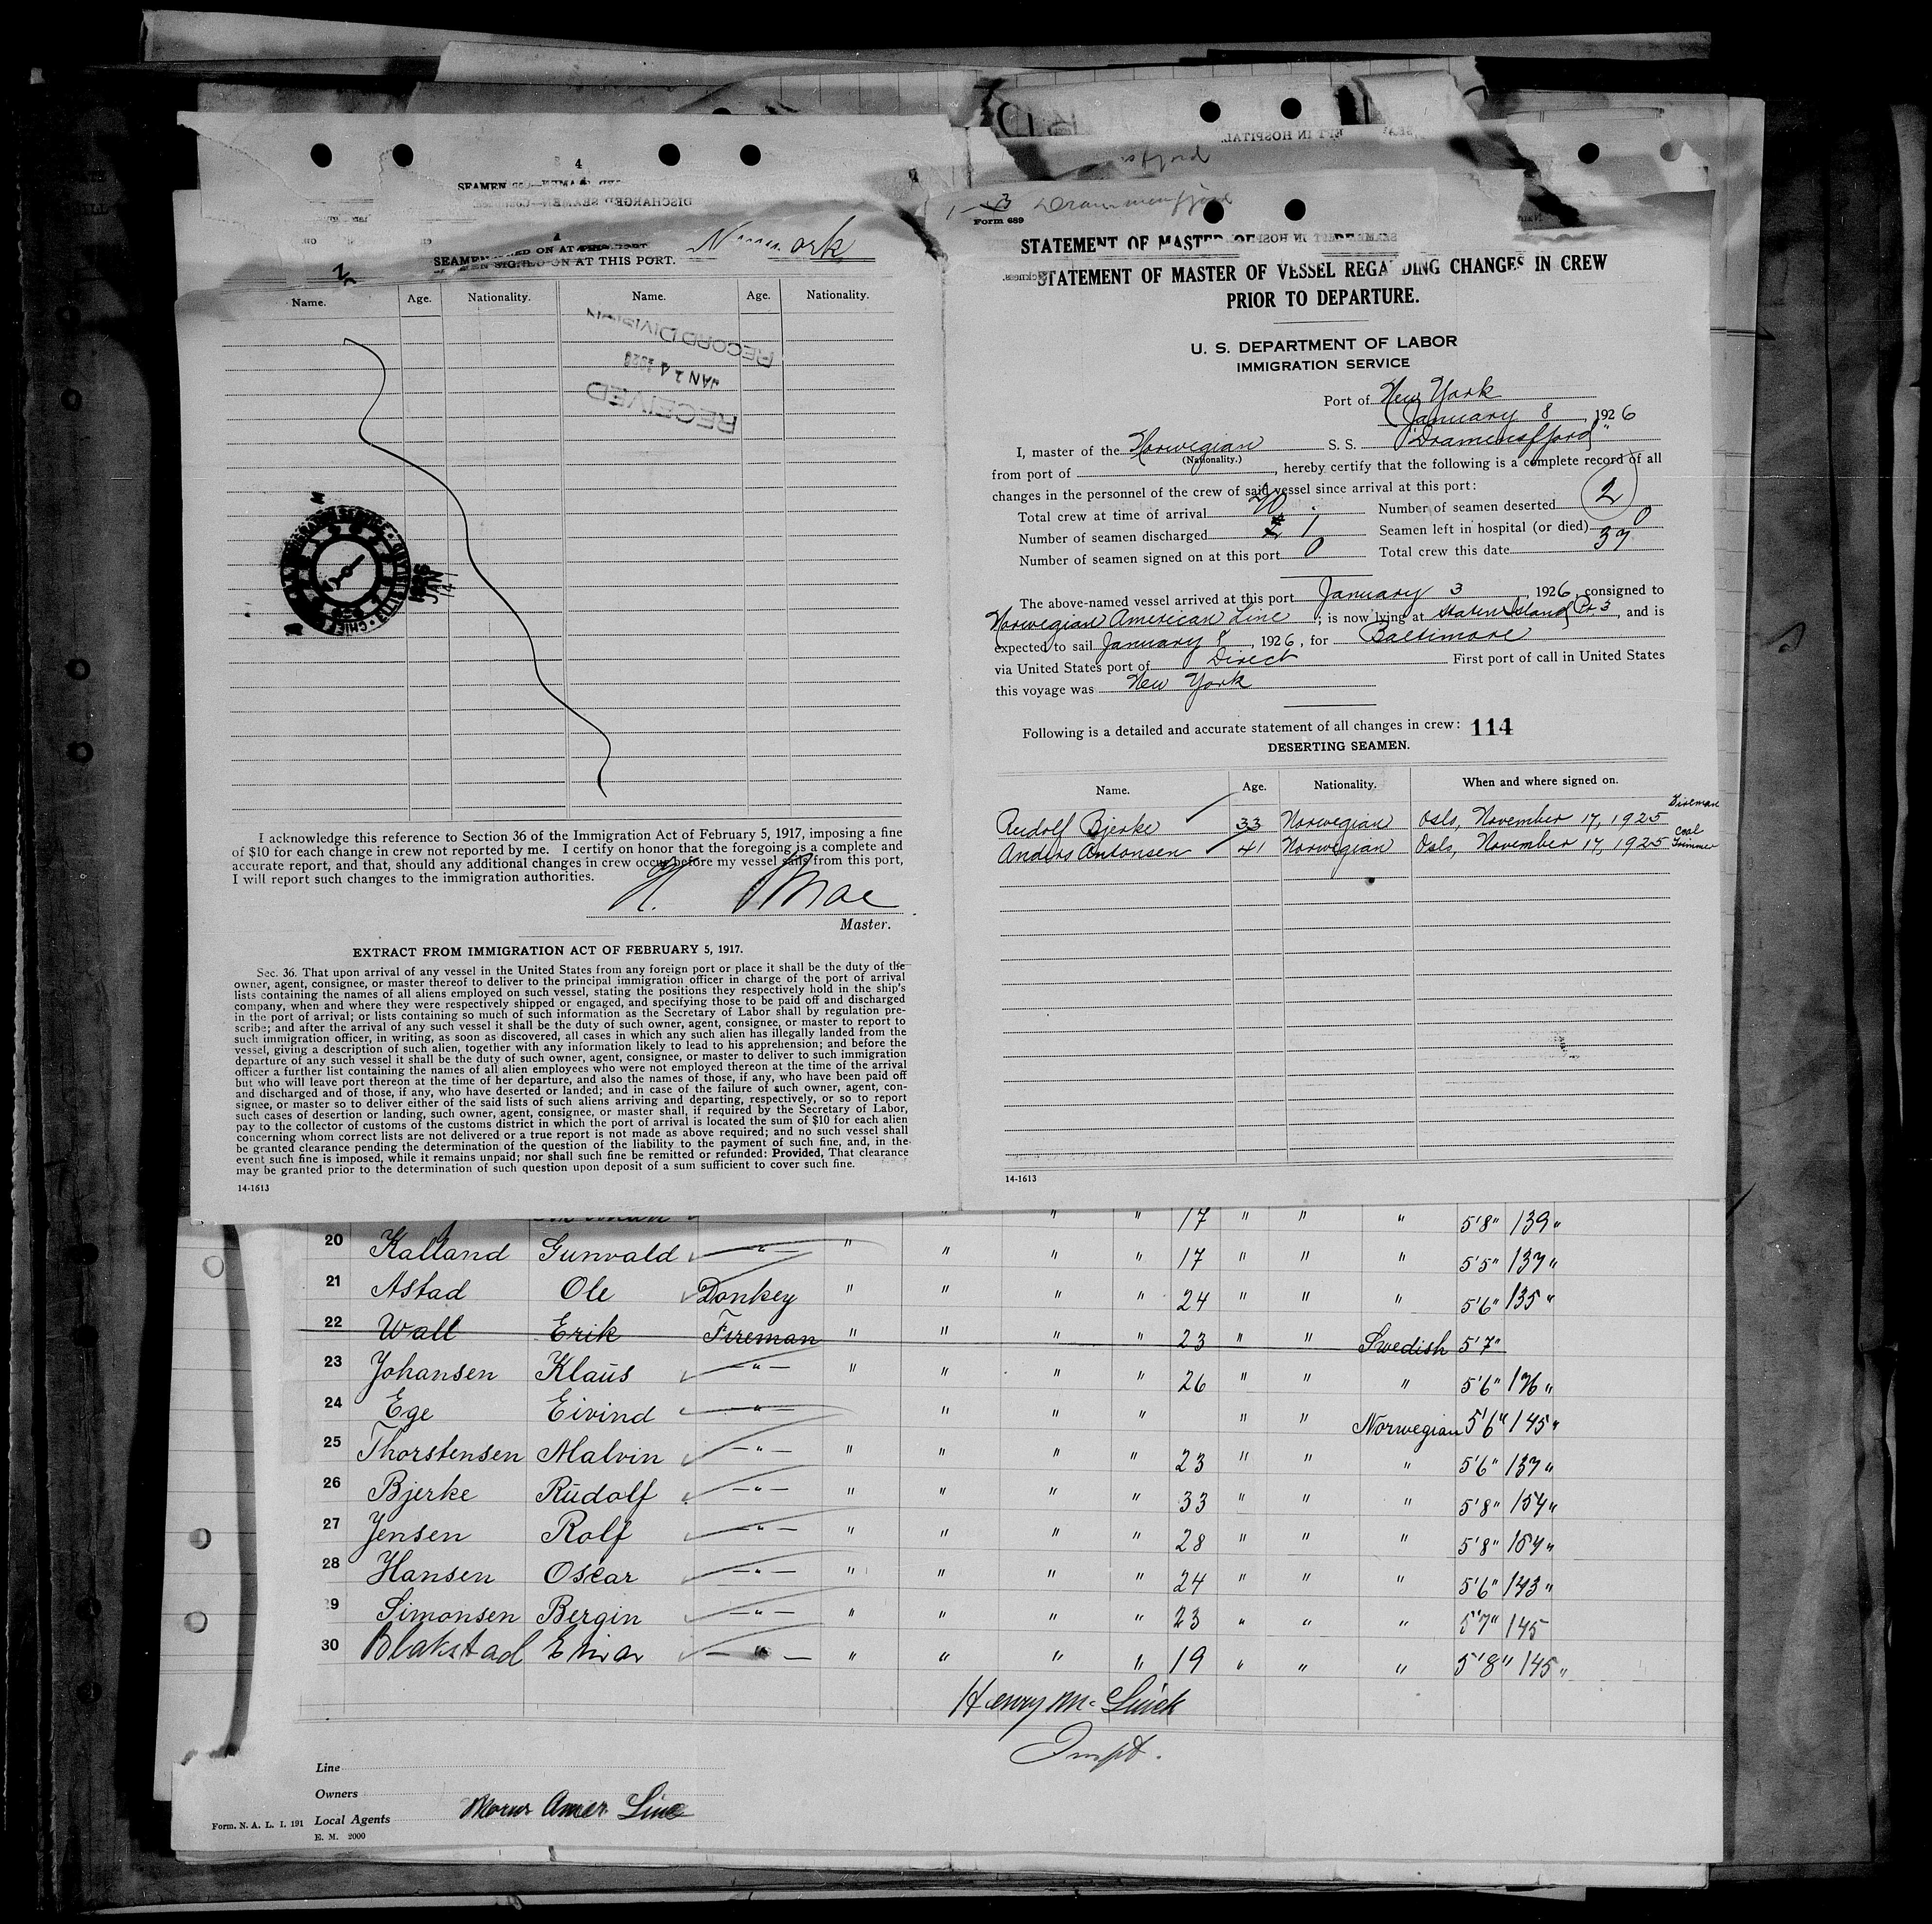 4
SEAMEN
DISCHARGED SEAMEN—
SEAMEN SIGNED ON AT THIS PORT.
Name. Age. Nationality. Name. Age. Nationality.
RECORD DIVISION
JAN 14
RECEIVED
JAN
14
I acknowledge this reference to Section 36 of the Immigration Act of February 5, 1917, imposing a fine
of $10 for each change in crew not reported by me. I certify on honor that the foregoing is a complete and
accurate report, and that, should any additional changes in crew occur before my vessel sails from this port,
I will report such changes to the immigration authorities.
Master.
EXTRACT FROM IMMIGRATION ACT OF FEBRUARY 5, 1917.
Sec. 36. That upon arrival of any vessel in the United States from any foreign port or place it shall be the duty of the
owner, agent, consignee, or master thereof to deliver to the principal immigration officer in charge of the port of arrival
lists containing the names of all aliens employed on such vessel, stating the positions they respectively hold in the ship's
company, when and where they were respectively shipped or engaged, and specifying those to be paid off and discharged
in the port of arrival; or lists containing so much of such information as the Secretary of Labor shall by regulation pre-
scribe; and after the arrival of any such vessel it shall be the duty of such owner, agent, consignee, or master to report to
such immigration officer, in writing, as soon as discovered, all cases in which any such alien has illegally landed from the
vessel, giving a description of such alien, together with any information likely to lead to his apprehension; and before the
departure of any such vessel it shall be the duty of such owner, agent, consignee, or master to deliver to such immigration
officer a further list containing the names of all alien employees who were not employed thereon at the time of the arrival
but who will leave port thereon at the time of her departure, and also the names of those, if any, who have been paid off
and discharged and of those, if any, who have deserted or landed; and in case of the failure of such owner, agent, con-
signee, or master so to deliver either of the said lists of such aliens arriving and departing, respectively, or so to report
such cases of desertion or landing, such owner, agent, consignee, or master shall, if required by the Secretary of Labor,
pay to the collector of customs of the customs district in which the port of arrival is located the sum of $10 for each alien
concerning whom correct lists are not delivered or a true report is not made as above required; and no such vessel shall
be granted clearance pending the determination of the question of the liability to the payment of such fine, and, in the
event such fine is imposed, while it remains unpaid; nor shall such fine be remitted or refunded: Provided, That clearance
may be granted prior to the determination of such question upon deposit of a sum sufficient to cover such fine.
14-1613
Form 689
STATEMENT OF MASTER
STATEMENT OF MASTER OF VESSEL REGARDING CHANGES IN CREW
PRIOR TO DEPARTURE.
U. S. DEPARTMENT OF LABOR
IMMIGRATION SERVICE
Port of New York
January 8, 1926
I, master of the Norwegian S. S. "Dramensfjord"
(Nationality.)
from port of , hereby certify that the following is a complete record of all
changes in the personnel of the crew of said vessel since arrival at this port:
Total crew at time of arrival 40 Number of seamen deserted 2
Number of seamen discharged 1 Seamen left in hospital (or died) 0
Number of seamen signed on at this port 0 Total crew this date 37
The above-named vessel arrived at this port January 3, 1926, consigned to
Norwegian American Line; is now lying at Staten Island Pr 3, and is
expected to sail January 8, 1926, for Baltimore
via United States port of Direct First port of call in United States
this voyage was New York
Following is a detailed and accurate statement of all changes in crew: 114
DESERTING SEAMEN.
Name. Age. Nationality. When and where signed on.
Rudolf Bjerke 33 Norwegian Oslo, November 17, 1925 Fireman
Anders Antonsen 41 Norwegian Oslo, November 17, 1925 Coal Trimmer
14-1613
" " " 17 " " " 5'8" 139"
20 Kalland Gunvald —"— " " " " 17 " " " 5'5" 137"
21 Astad Ole Donkey " " " " 24 " " " 5'6" 135"
22 Wall Erik Fireman " " " " 23 " " Swedish 5'7"
23 Johansen Klaus —"— " " " " 26 " " " 5'6" 136"
24 Ege Eivind —"— " " " " " Norwegian 5'6" 145"
25 Thorstensen Malvin —"— " " " " 23 " " " 5'6" 137"
26 Bjerke Rudolf —"— " " " " 33 " " " 5'8" 154"
27 Jensen Rolf —"— " " " " 28 " " " 5'8" 154"
28 Hansen Oscar —"— " " " " 24 " " " 5'6" 143"
29 Simonsen Bergin —"— " " " " 23 " " " 5'7" 145
30 Blakstad Einar —"— " " " " 19 " " " 5'8" 145"
Line
Owners
Local Agents Norw Amer. Line
Form. N. A. L. I. 191
E. M. 2000